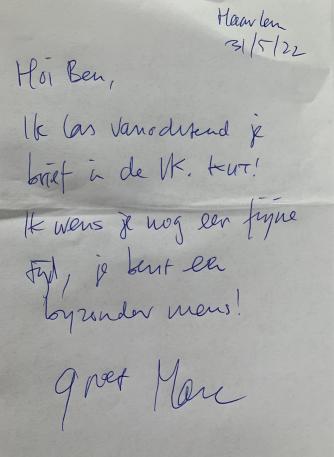 Haarlem
31/5/22
Hoi Ben,
Ik las vanochtend je
brief in de VK. Kut!
Ik wens je nog een fijne
tijd, je bent een
bijzonder mens!
groet Marc